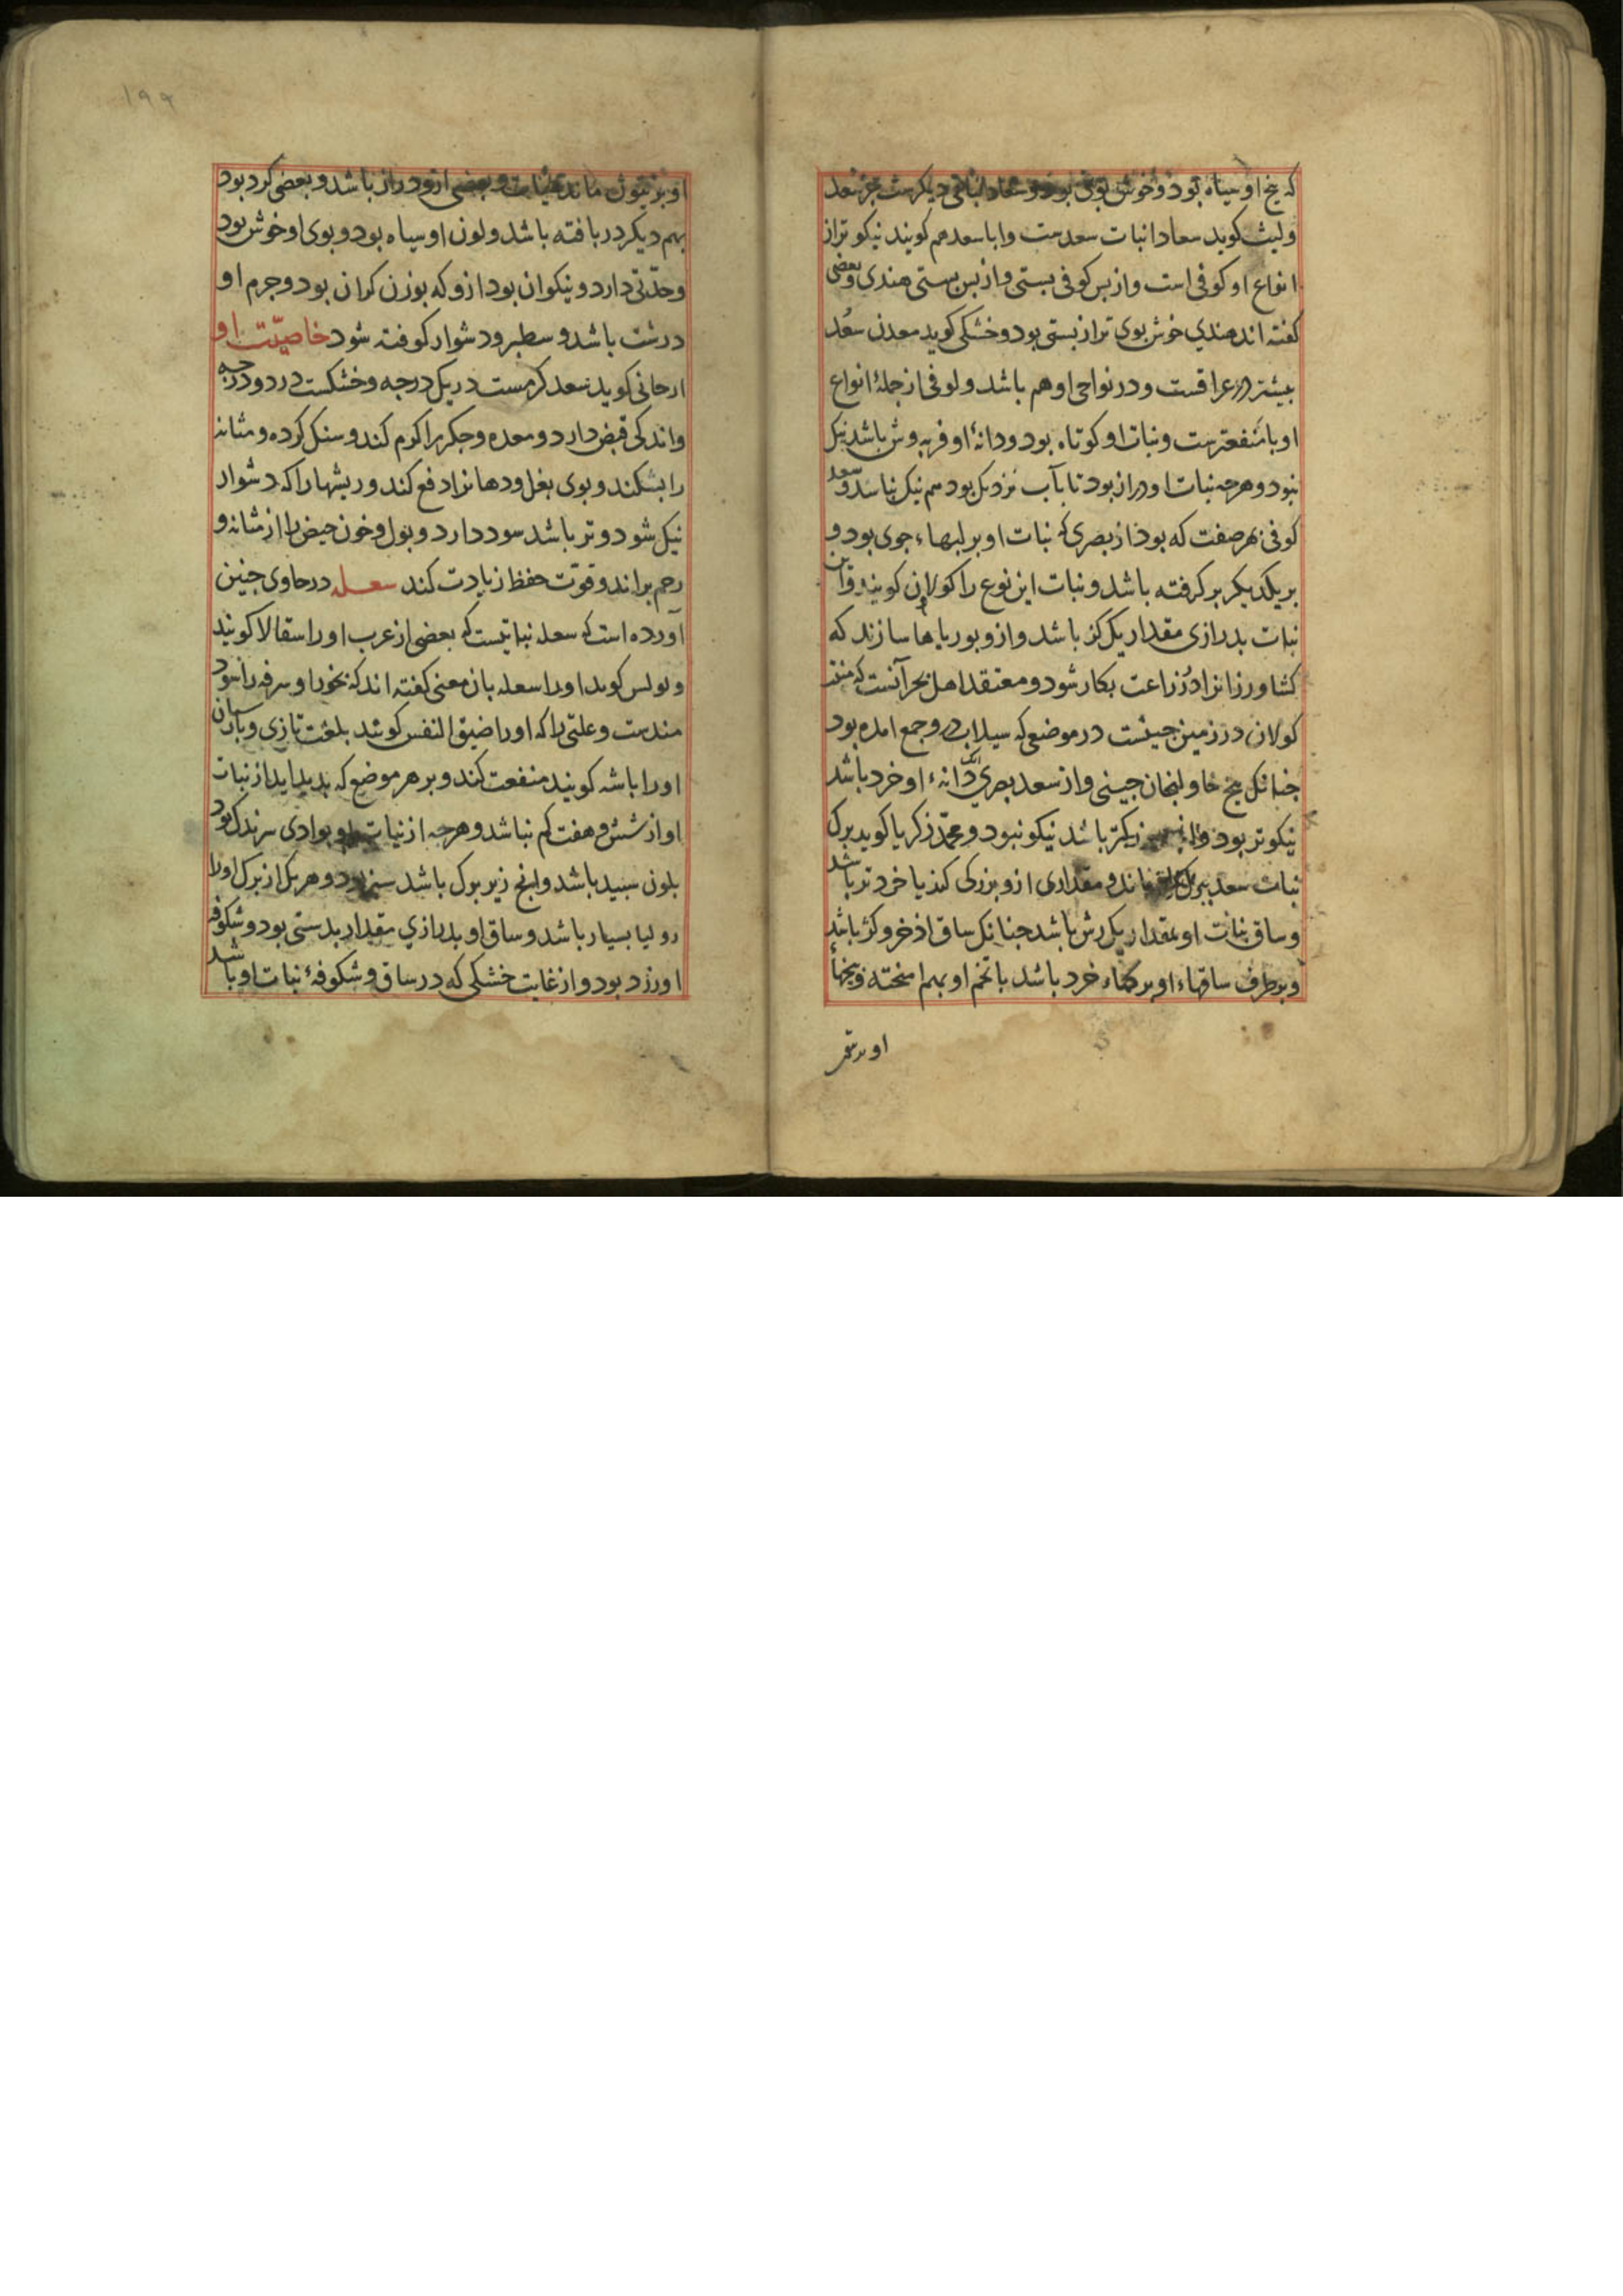 که بیخ او سیاه بود و خوش بوی بود و سعاد نباتی دیکرست جز سعد
و لیث کوید سعادا نبات سعدست وابا سعد هم کویند نیکو تر از
انواع او کوفی است و از بس کوفی بستی و از بس بستی هندی و بعضی
کفته اند هندی خوش بوی تر از بستی بود و خشکی کوید معدن سعد
بیشتر در عراقست و در نواحی او هم باشد و کوفی از جملهٔ انواع
او با منفعترست و نبات او کوتاه بود و دانهٔ او فربه وش باشد نیک
نبود و هرجه نبات او دراز بود تا بآب نزدیک بود هم نیک نباشد و سعد
کوفی بهر صفت که بود از بصری که نبات او بر لبهاء جوی بود و
بر یکدیکر بر کرفته باشد و نبات این نوع را کولان کویند و آن
نبات بدرازی مقدار یک کز باشد و ازو بوریاها سازند که
کشاورزانرا در زراعت بکار شود و معتقد اهل بحر آنست که
کولان در زمین جینست در موضعی که سیلاب درو جمع امده بود
جنانک بیخ خاولنجان جینی و از سعد بصری آنک دانهٔ او خرد باشد
نیکوتر بود و بزرکتر باشد نیکو نبود و محمد زکریا کوید برک
نبات سعد ببرک ماند و مقداری ازو بزرکی کند یا خردتر باشد
و ساق نبات او بمقدار یک رش باشد جنانک ساق اذخر و کژ باشد
و بر طرف ساقهاء او برکهاء خرد باشد با تخم او بهم امیخته و بیخهاء
او بزیتون ماند بعضی ازو دراز باشد و بعضی کرد بود
بهم دیکر در بافته باشد و لون او سیاه بود و بوی او خوش بود
و حدّتی دارد و نیکو ان بود ازو که بوزن کران بود و جرم او
درشت باشد و سطبر و دشوار کوفته شود خاصیّت او
ارجانی کوید سعد کرمست در یک درجه و خشکست در دو درجه
و اندکی قبض دارد و معده و جکر را کرم کند و سنک کرده و مثانه
را بشکند و بوی بغل و دهانرا دفع کند و ریشها را که دشوار
نیک شود و تر باشد سود دارد و بول و خون حیض را از مثانه و
رحم براند و قوّت حفظ زیادت کند سعله در حاوی جنین
آورده است که سعله نباتیست که بعضی از عرب او را سقالا کویند
و بولس کوید او را سعله بان معنی کفته اند که بخور او سرفه را سود
مندست و علتی را که او را ضیق النفس کویند بلغت تازی و بپارسیان
او را باشه کویند منفعت کند و بر هر موضع که بدید اید از نبات
او از شش و هفت کم نباشد و هرجه از نبات او بوادی سر زند برک بود
بلون سبید باشد و انج زیر برک باشد سبز بود و هر یک از برک او را
رو لیا بسیار باشد و ساق او بدرازی مقدار بدستی بود و شکوفه
او زرد بود و از غایت خشکی که در ساق و شکوفهٔ نبات او باشد